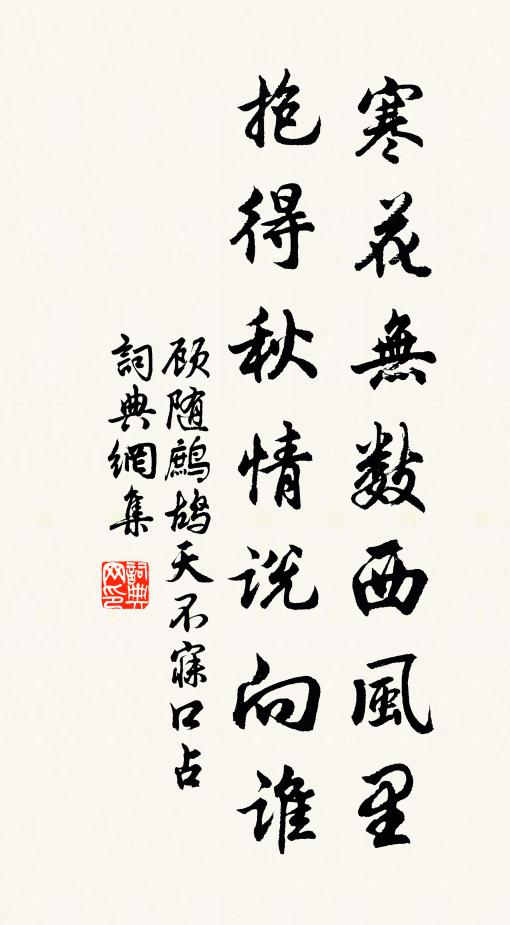 寒花無數西風里
抱得秋情说向谁
顾随鹧鸪天不寐口占
詞典網集
詞典网印